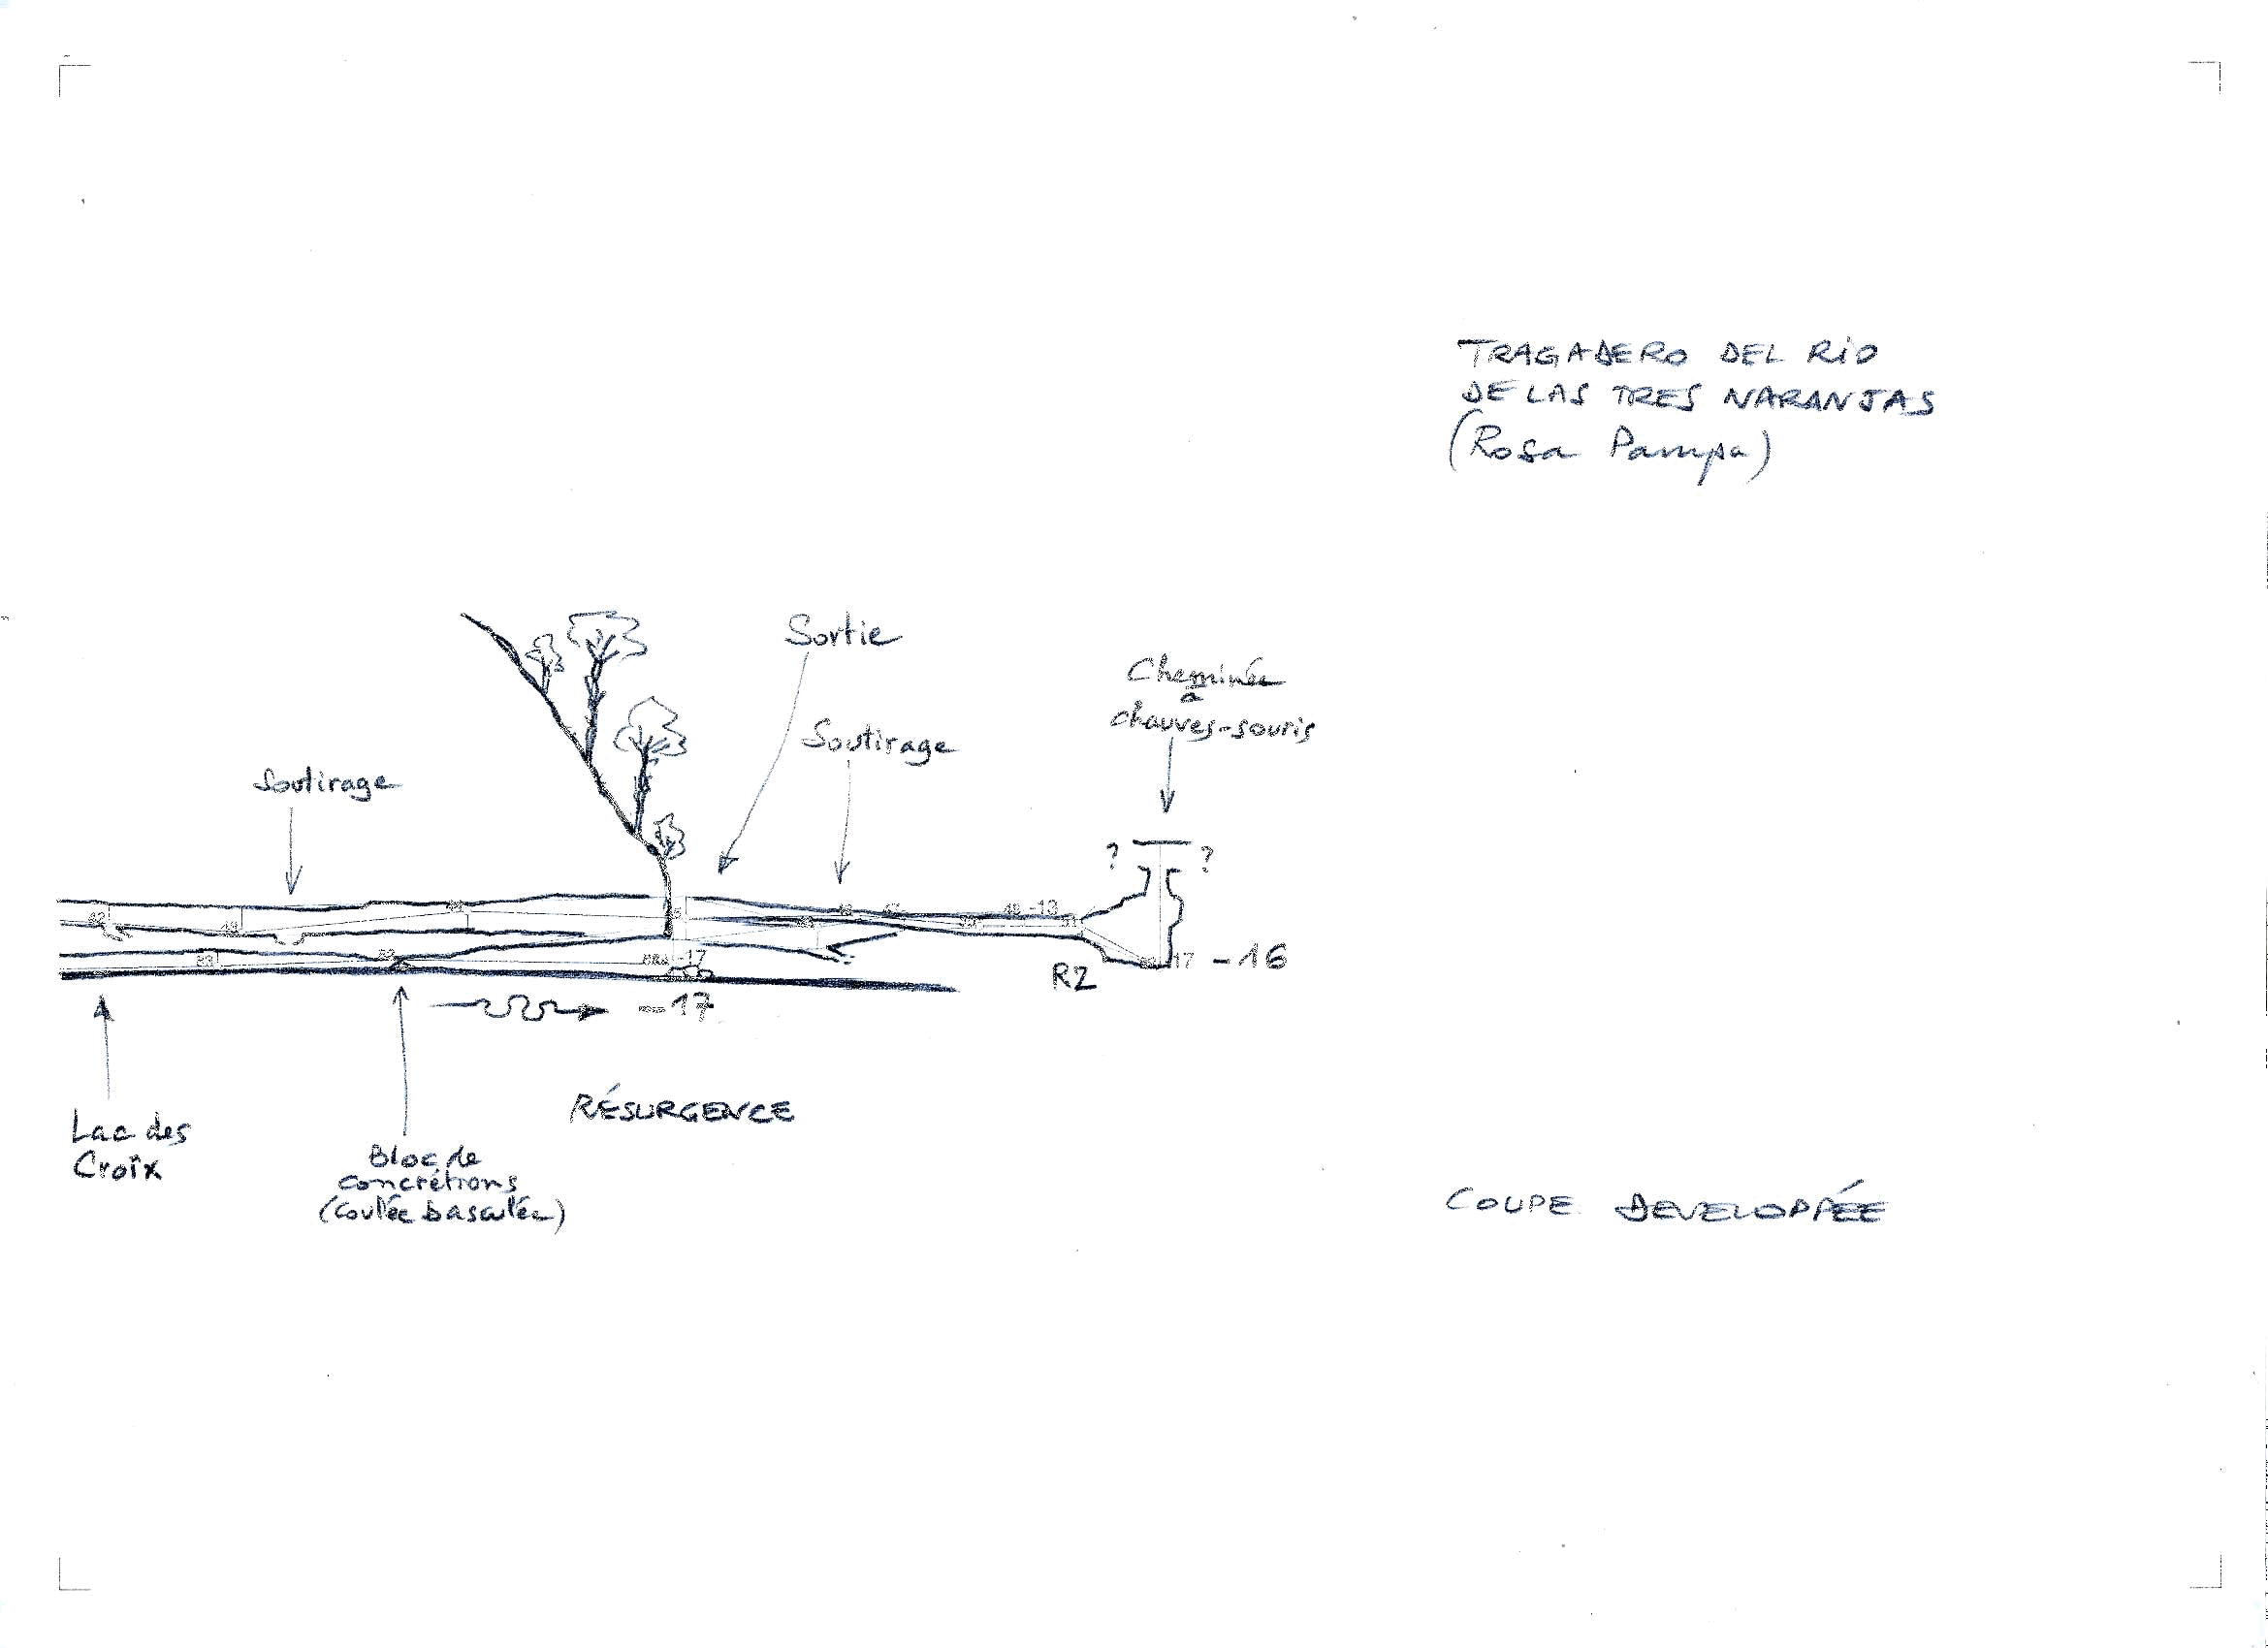 TRAGADERO DEL RIO
DE LAS TRES NARANJAS
(Rosa Pampa)
Sortie
Cheminée
à
chauves-souris
Soutirage
Soutirage
? ?
42
-13
-17
17 -16
R2
-17
RÉSURGENCE
Lac des
Croix
Bloc de
concrétions
(coulée basculée)
COUPE DEVELOPPÉE